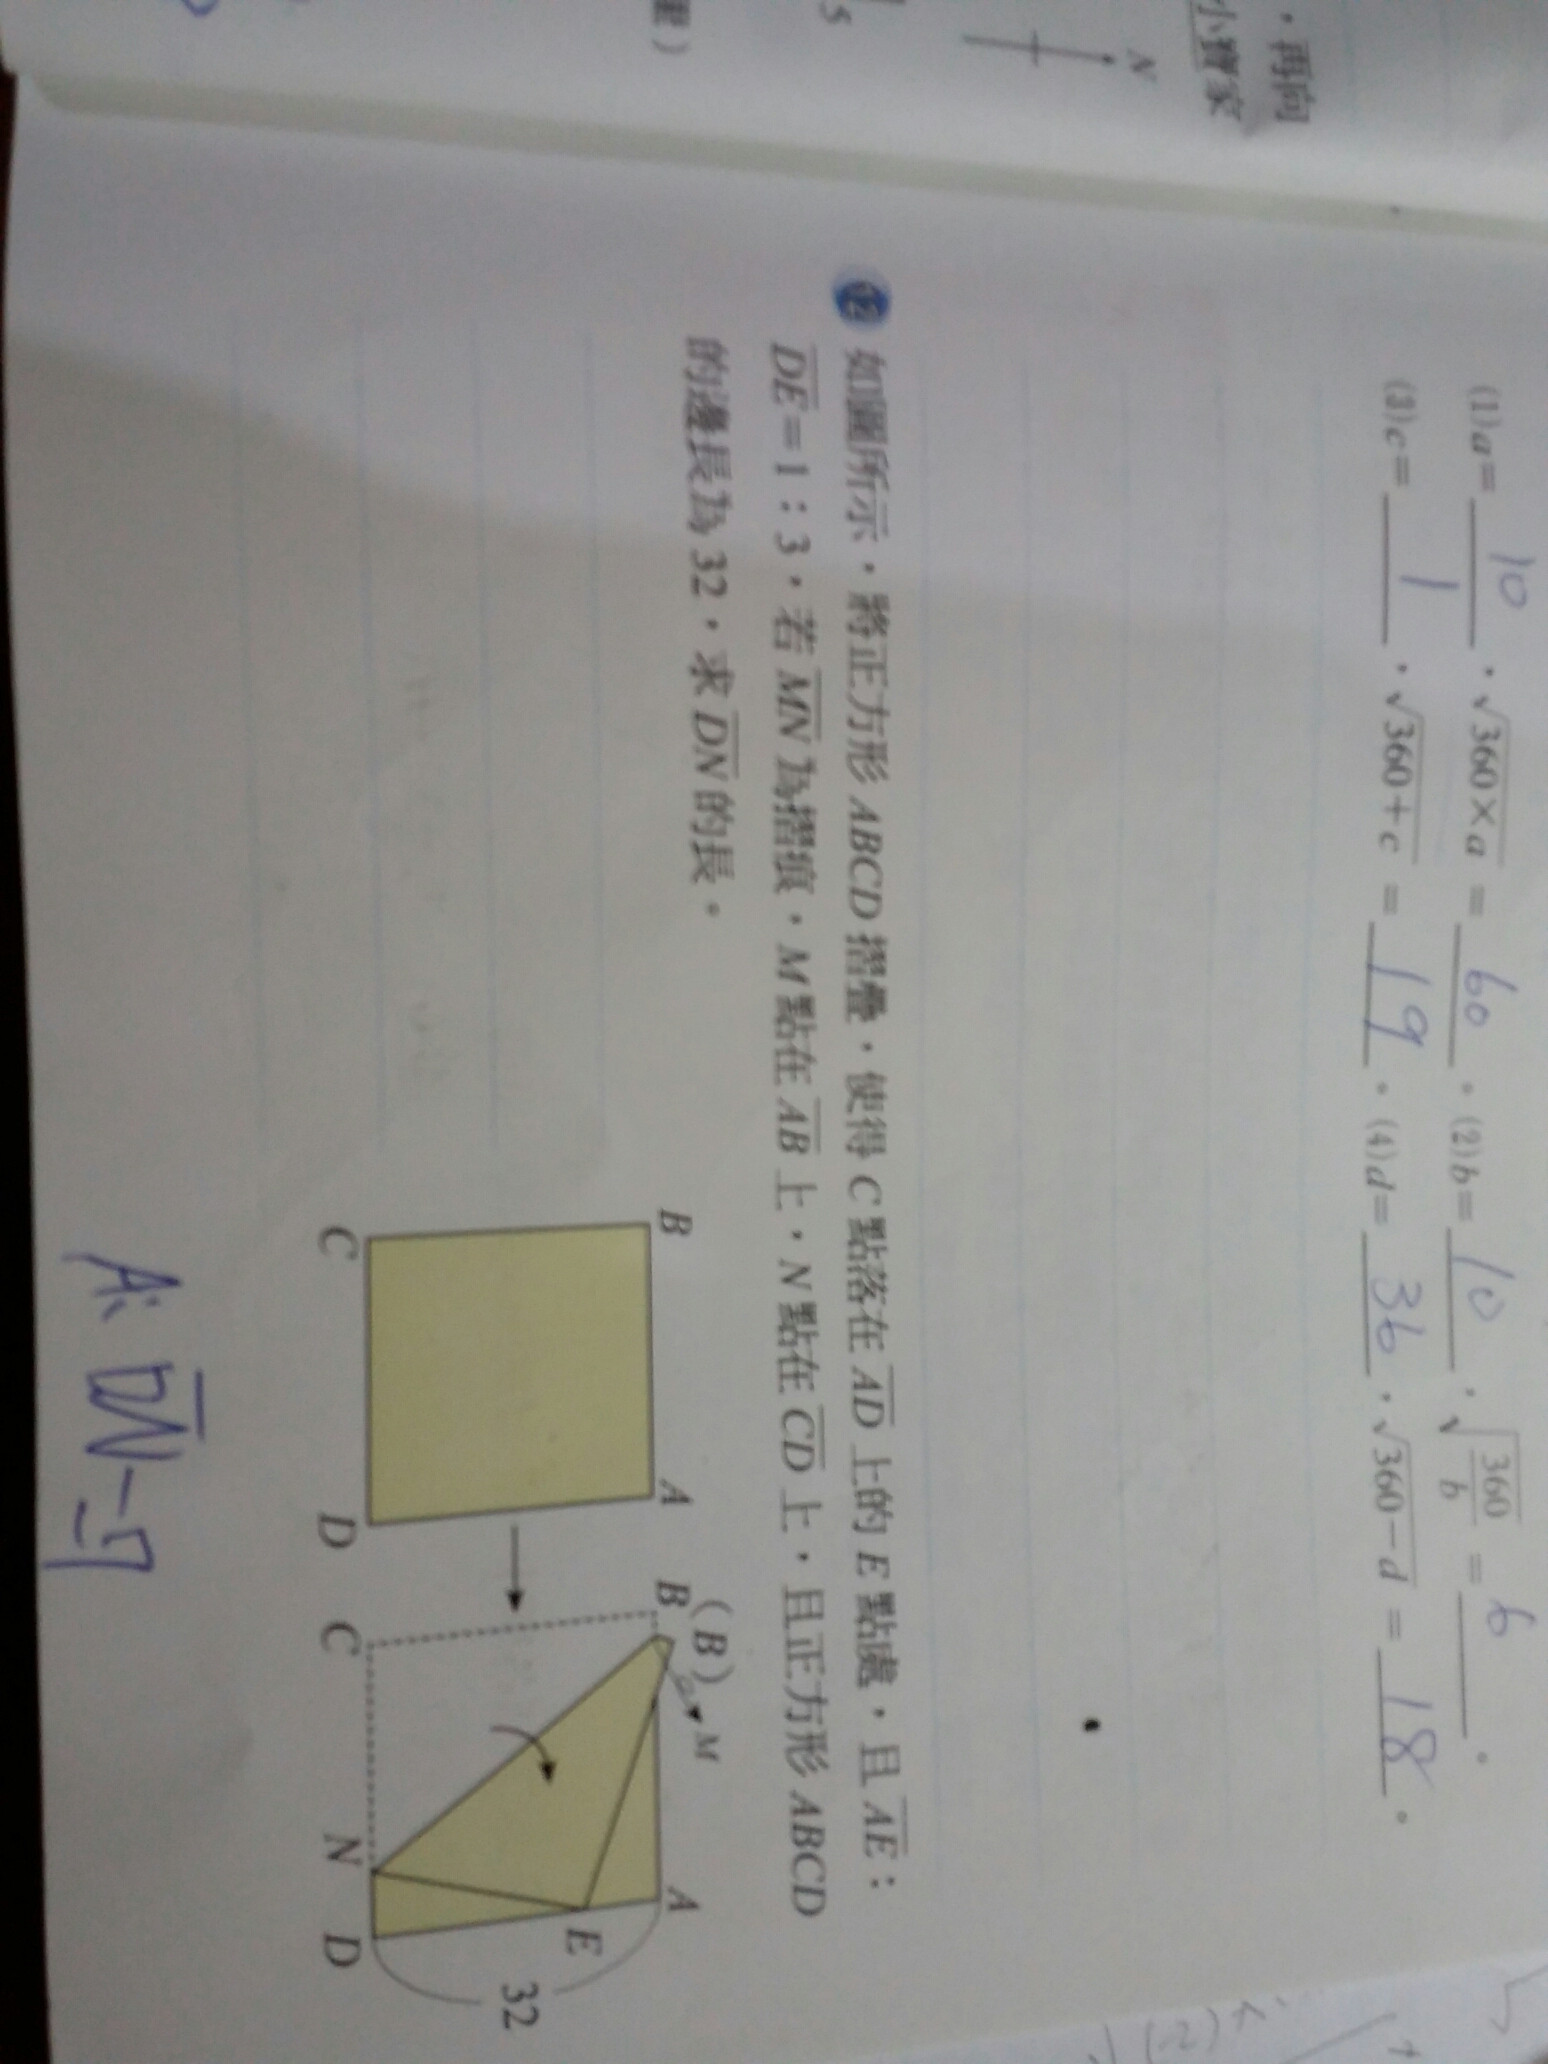 ，再向
小寶家
N
5
里）
(1) a= 10 ，√360×a = 60 。(2) b= 10 ，√360/b = 6 。
(3) c= 1 ，√360+c = 19 。(4) d= 36 ，√360−d = 18 。
02 如圖所示，將正方形 ABCD 摺疊，使得 C 點落在 AD 上的 E 點處，且 AE：
DE＝1：3，若 MN 為摺痕，M 點在 AB 上，N 點在 CD 上，且正方形 ABCD
的邊長為 32，求 DN 的長。
B A
C D
(B)
B M A
E
32
C N D
A: DN=7